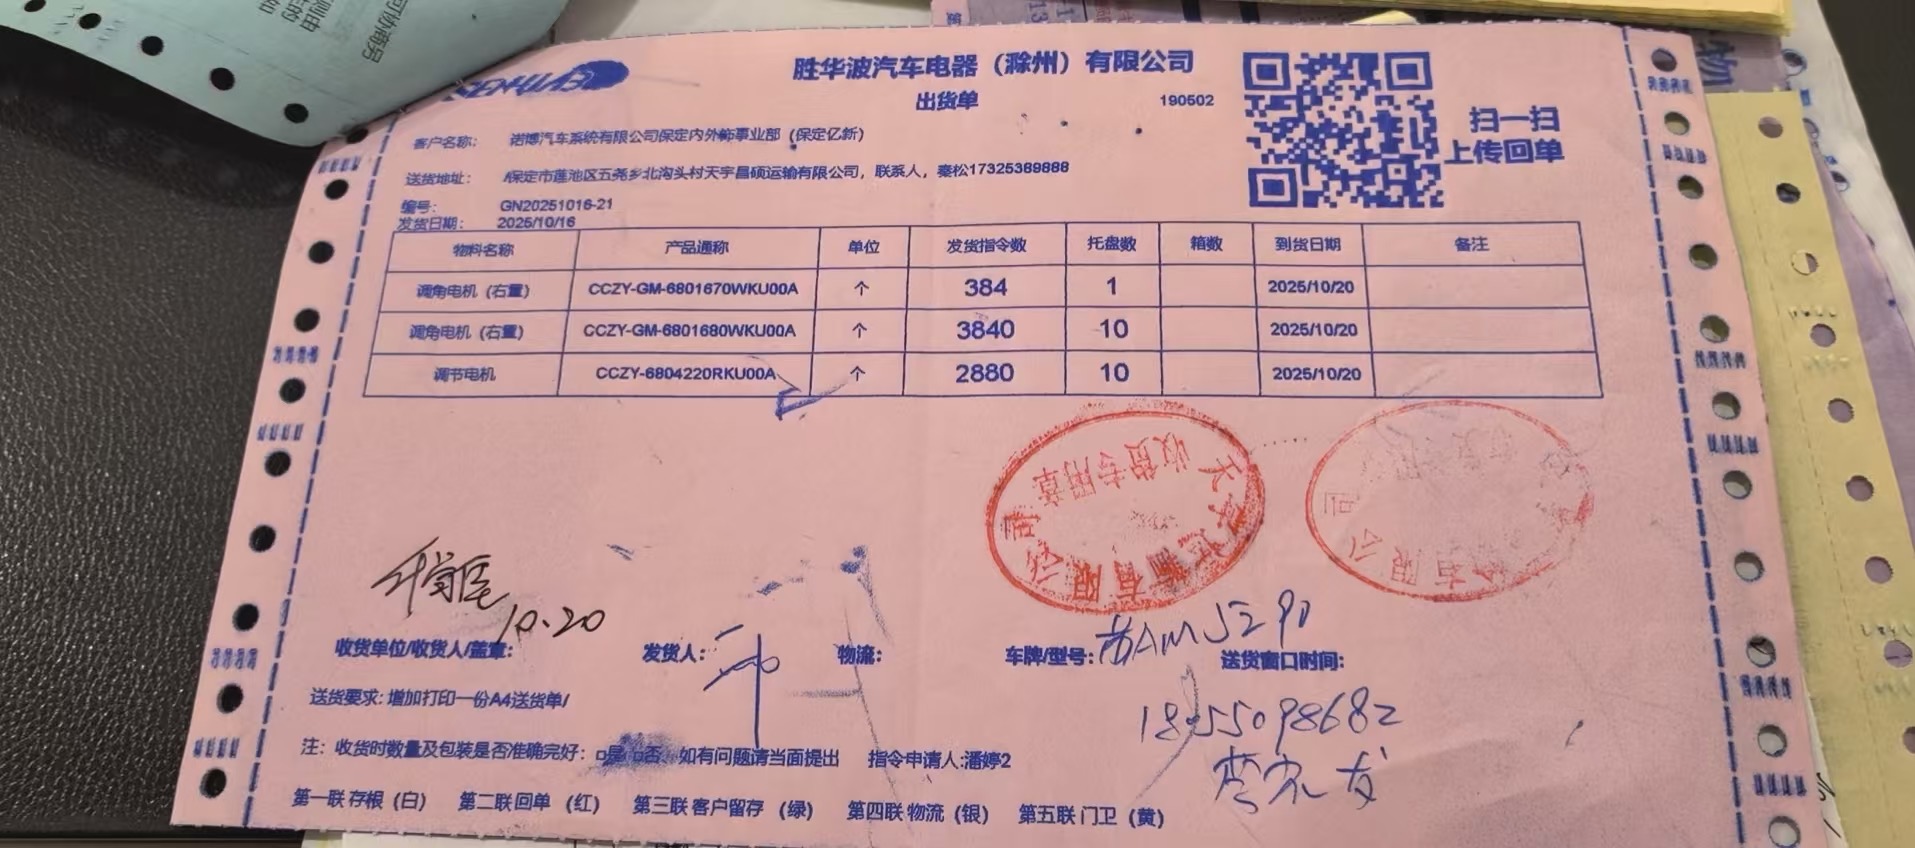 胜华波汽车电器（滁州）有限公司
出货单
190502
扫一扫
上传回单
客户名称： 诺博汽车系统有限公司保定内外饰事业部（保定亿新）
送货地址： 保定市莲池区五尧乡北沟头村天宇昌硕运输有限公司，联系人，秦松17325389888
编号： GN20251016-21
发货日期： 2025/10/16
物料名称 产品通称 单位 发货指令数 托盘数 箱数 到货日期 备注
调角电机（右置） CCZY-GM-6801670WKU00A 个 384 1 2025/10/20
调角电机（右置） CCZY-GM-6801680WKU00A 个 3840 10 2025/10/20
调节电机 CCZY-6804220RKU00A 个 2880 10 2025/10/20
收货专用章
有限公司
10.20
收货单位/收货人/盖章： 发货人： 物流： 车牌/型号： 送货窗口时间：
送货要求：增加打印一份A4送货单/
注：收货时数量及包装是否准确完好：□是 □否 如有问题请当面提出 指令申请人:潘婷2
第一联 存根（白） 第二联 回单（红） 第三联 客户留存（绿） 第四联 物流（银） 第五联 门卫（黄）